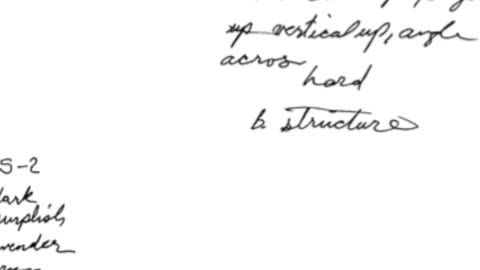 up vertical up, angle
across
hard
b. structure
S-2
dark
purplish
lavender